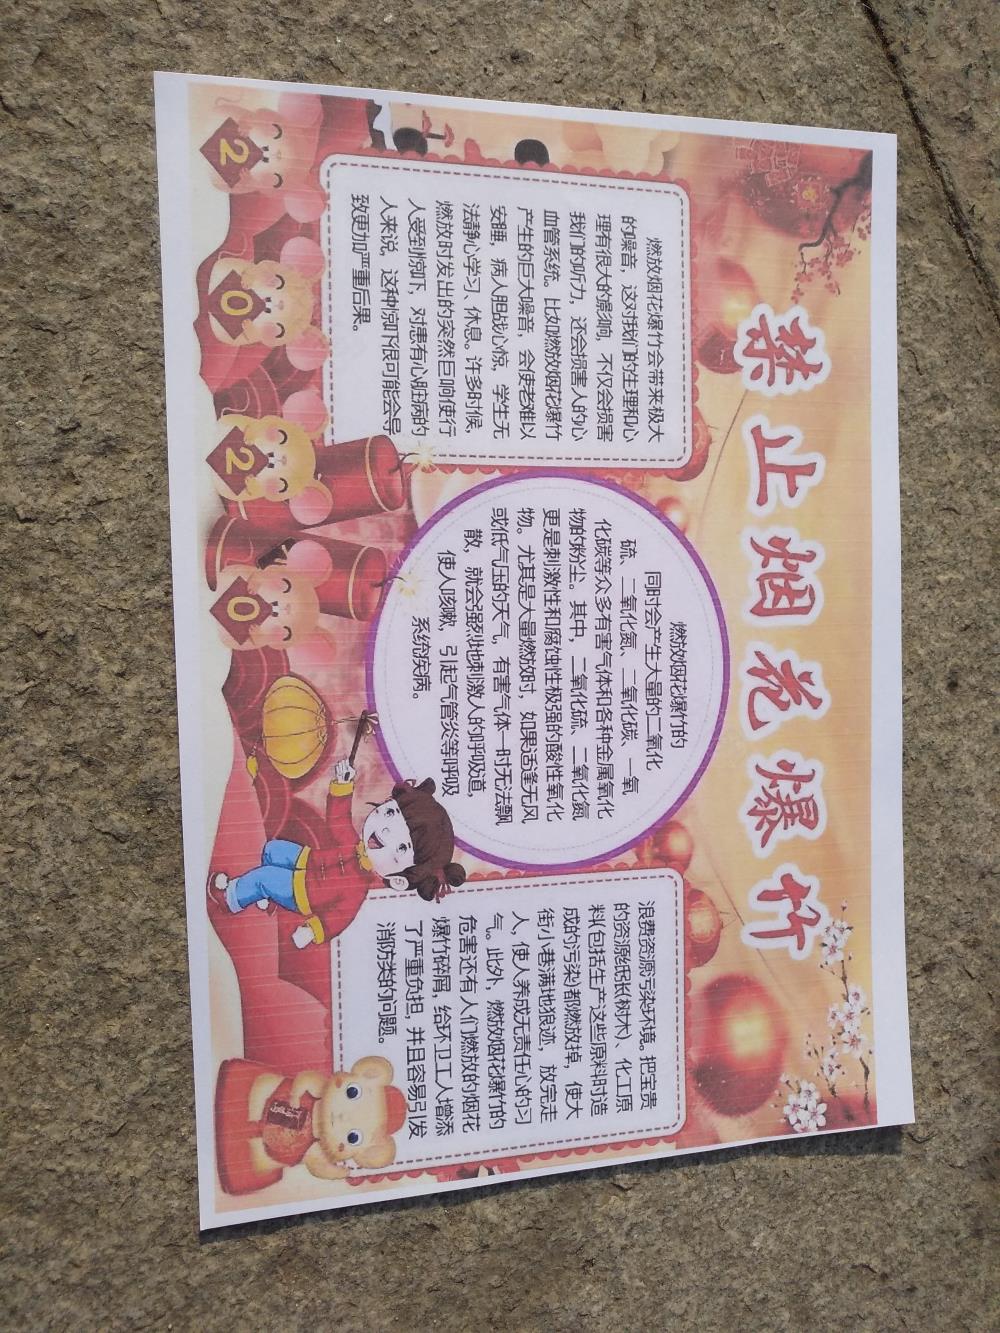 禁止烟花爆竹
燃放烟花爆竹会带来极大
的噪音，这对我们的生理和心
理有很大的影响，不仅会损害
我们的听力，还会损害人的心
血管系统。比如燃放烟花爆竹
产生的巨大噪音，会使老难以
安睡，病人胆战心惊，学生无
法静心学习、休息。许多时候，
燃放时发出的突然巨响使行
人受到惊吓，对患有心脏病的
人来说，这种惊吓很可能会导
致更加严重后果。
燃放烟花爆竹的
同时会产生大量的二氧化
硫、二氧化氮、二氧化碳、一氧
化碳等众多有害气体和各种金属氧化
物的粉尘。其中，二氧化硫、二氧化氮
更是刺激性和腐蚀性极强的酸性氧化
物。尤其是大量燃放时，如果适逢无风
或低气压的天气，有害气体一时无法飘
散，就会强烈地刺激人的呼吸道，
使人咳嗽，引起气管炎等呼吸
系统疾病。
浪费资源污染环境。把宝贵
的资源纸张(树木)、化工原
料(包括生产这些原料时造
成的污染)都燃放掉，使大
街小巷满地狼迹，放完走
人，使人养成无责任心的习
气。此外，燃放烟花爆竹的
危害还有人们燃放的烟花
爆竹碎屑，给环卫工人增添
了严重负担，并且容易引发
消防类的问题。
2
0
2
0